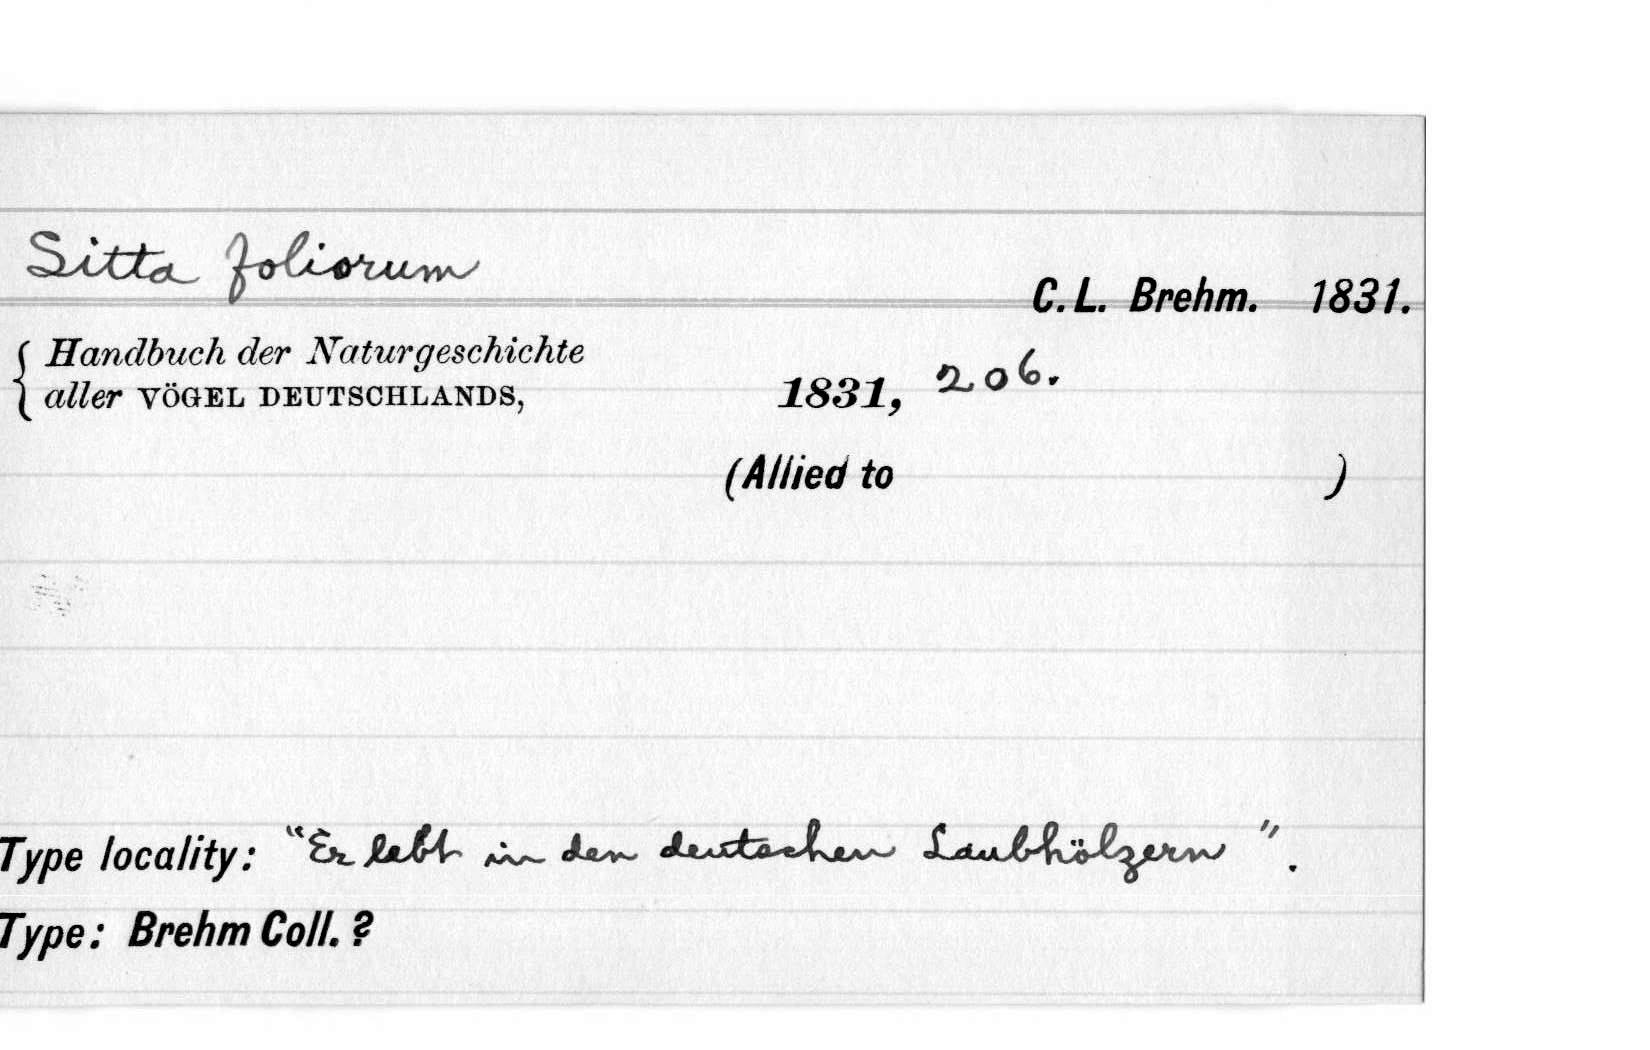 Sitta foliorum
C. L. Brehm. 1831.
{ Handbuch der Naturgeschichte
aller VÖGEL DEUTSCHLANDS, 1831, 206.
(Allied to )
Type locality: "Er lebt in den deutschen Laubhölzern".
Type: Brehm Coll. ?